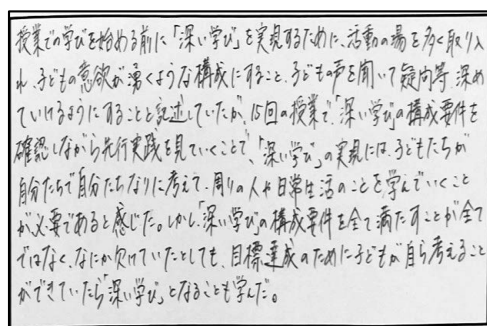 授業での学びを始める前に「深い学び」を実現するために、活動の場を多く取り入
れ、子どもの意欲が湧くような構成にすること、子どもの声を聞いて疑問等、深め
ていけるようにすることと記述していたが、15回の授業で、「深い学び」の構成要件を
確認しながら先行実践を見ていくことで、「深い学び」の実現には、子どもたちが
自分たちで自分たちなりに考えて、周りの人や日常生活のことを学んでいくこと
が必要であると感じた。しかし、「深い学び」の構成要件を全て満たすことが全て
ではなく、なにか欠けていたとしても、目標達成のために子どもが自ら考えること
ができていたら「深い学び」となることも学んだ。